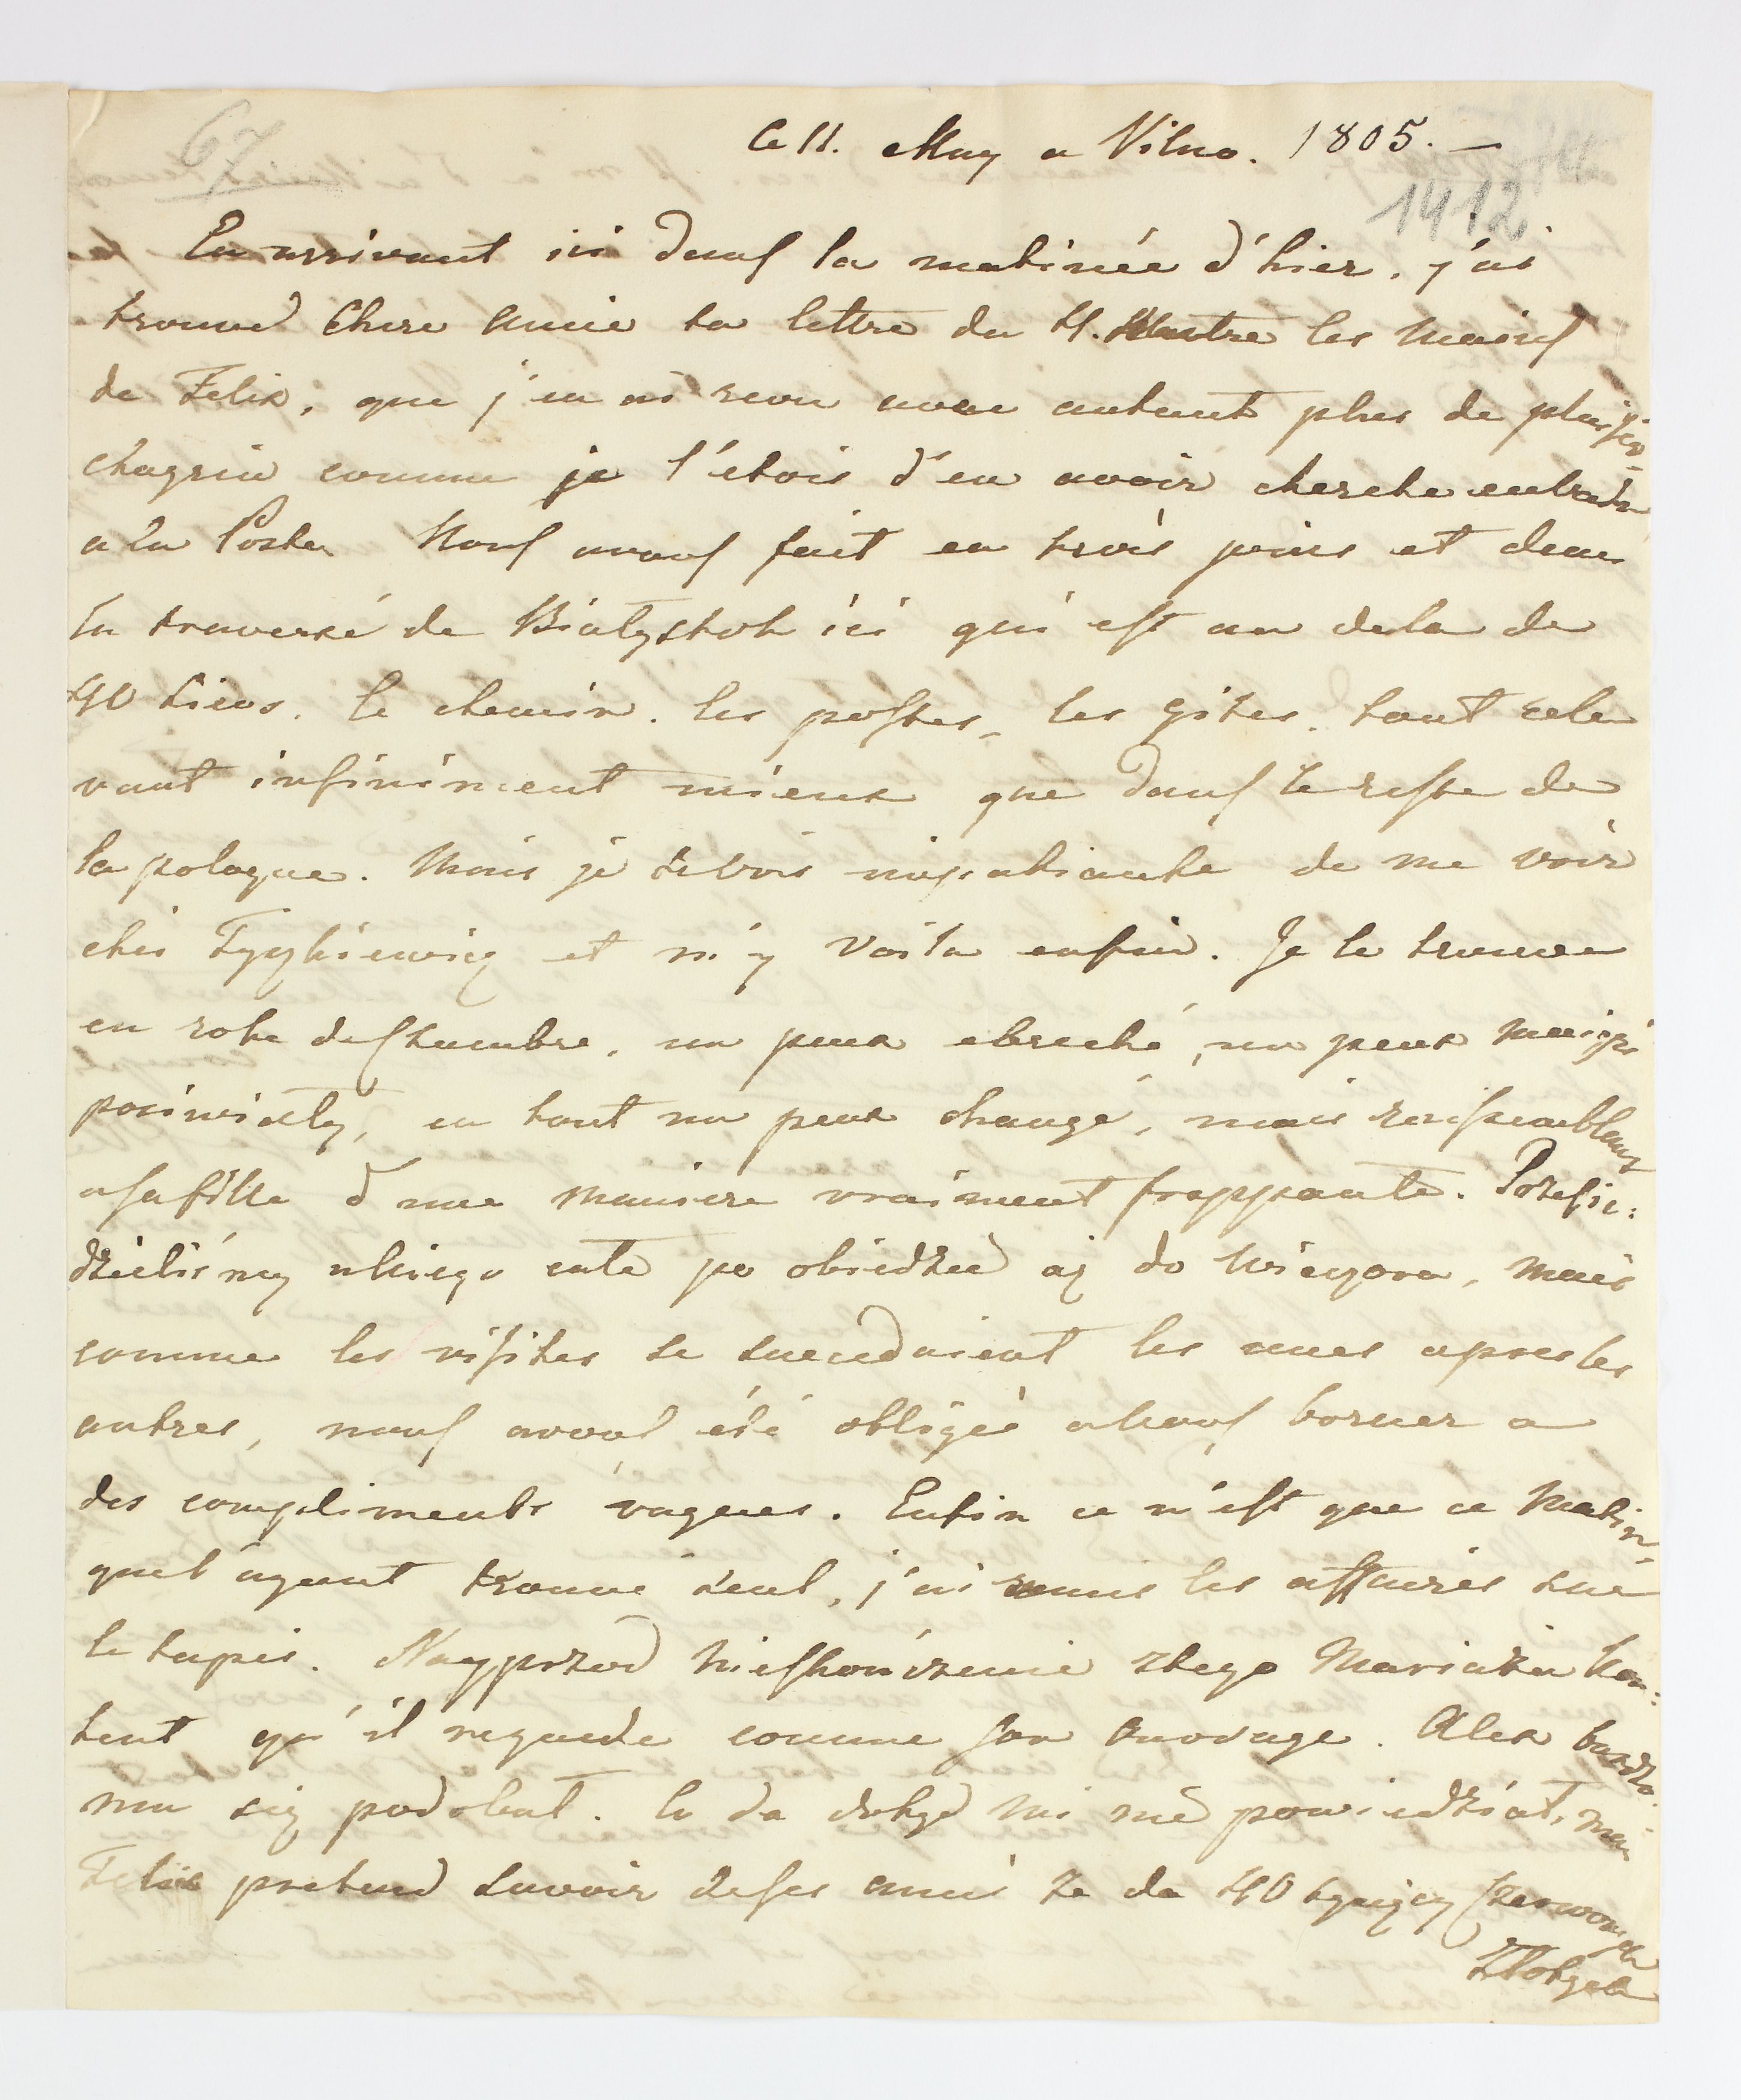 67
Ce 11. May a Vilno. 1805. —
1412
En arrivant ici dans la matinée d'hier, j'ai
trouvé Chere Amie ta lettre du 4. entre les mains
de Felix, que j'en ai reçu avec autant plus de plaisir
chagrin comme je l'etois d'en avoir cherché
a la Poste. Nous avons fait en trois jours et demi
la traversé de Bialystok ici qui est au dela de
40 lieus. le chemin. les postes, les gites. tout cela
vaut infiniment mieux que dans le reste de
la pologne. Mais je te vois impatiante de me voir
ches Tyszkiewicz et m'y voila enfin. Je le trouve
en robe de chambre, un peux ebreché, un peux maigri
posiwiały, en tout un peux changé, mais ressemblant
a sa fille d'une maniere vraiment frappante. Przesie:
dzieliśmy u niego całe po obiedzie aż do wieczora, mais
comme les visites se succedaient les unes apres les
autres, nous avons été obligés a nous borner a
des compliments vagues. Enfin ce n'est que ce matin
quel'ayant trouvé seul, j'ai remis les affaires sur
le tapis. Nayprzod nieskończenie z tego Mariażu kon:
tent qu'il regarde comme son ouvrage. Alex bardzo
mu się podobał. Co da dotąd mi nie powiedział, mais
Felix pretend savoir de ses amis że da 40 tysięcy czerwonych
Złotych